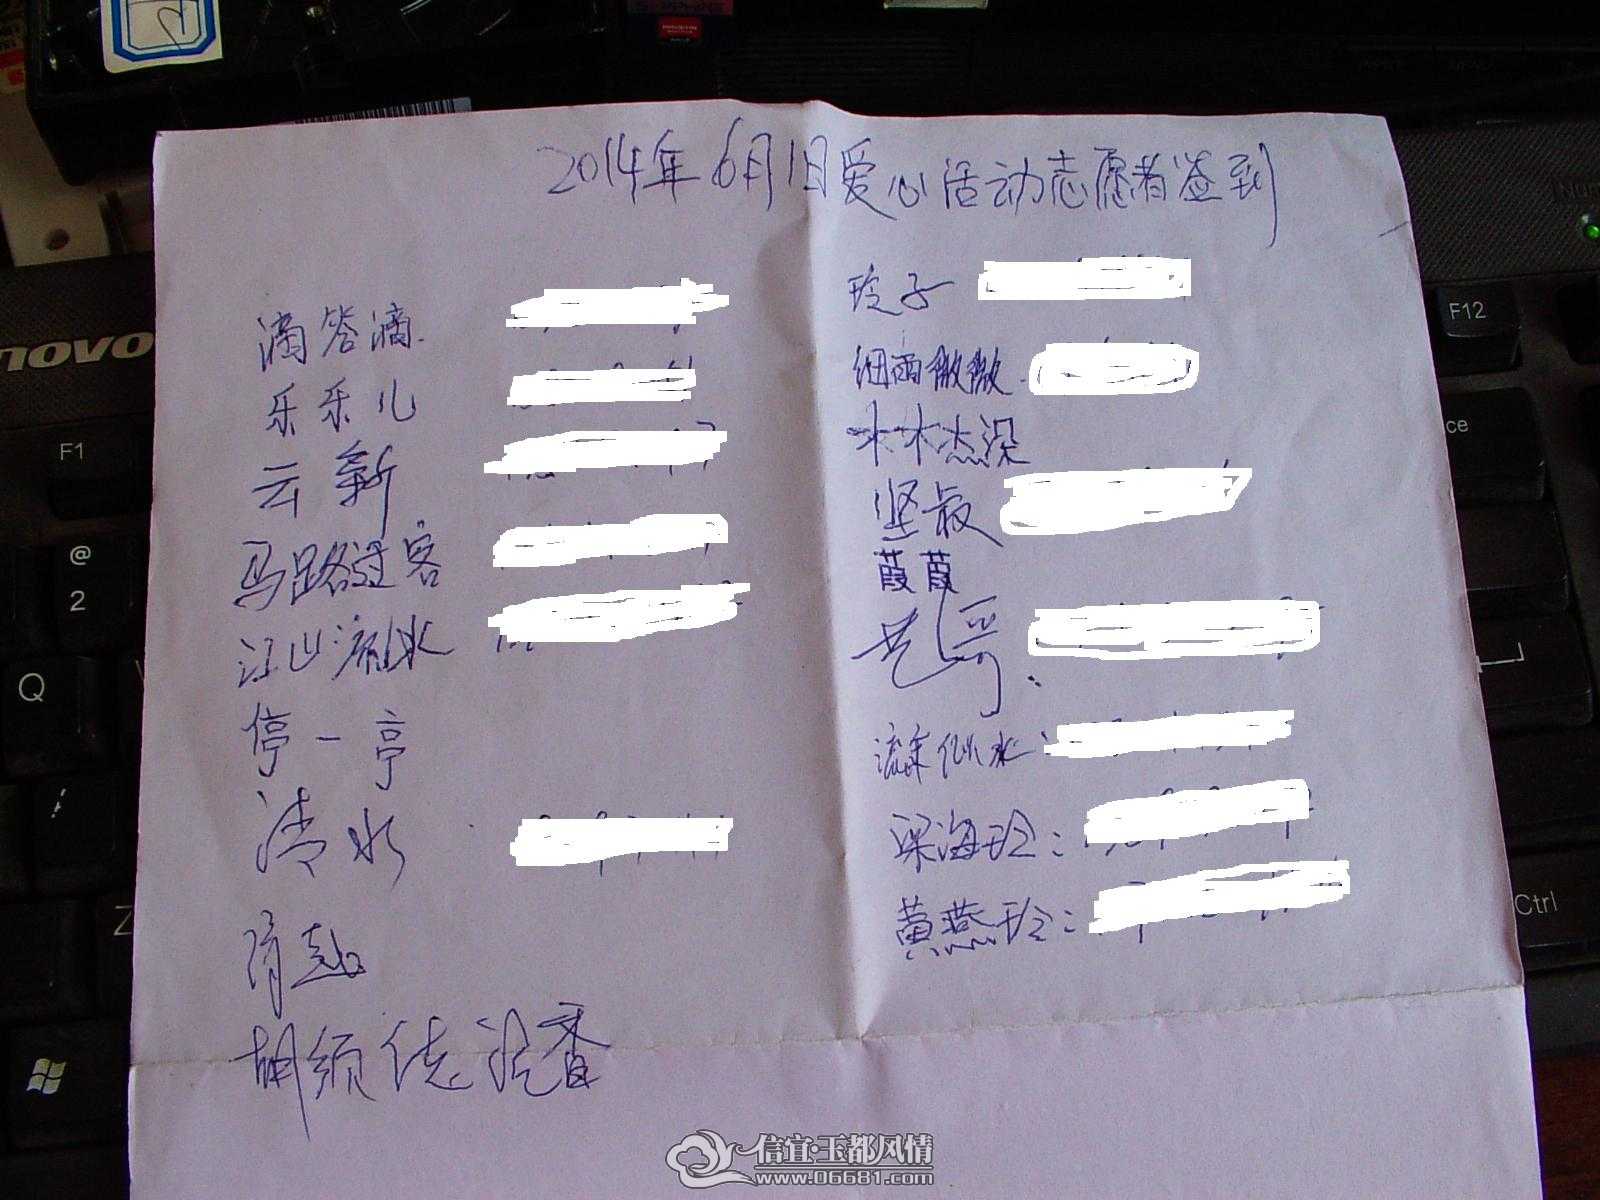 2014年6月1日爱心活动志愿者签到
滴答滴
乐乐儿
云新
马路过客
江山流水
停一亭
清水
胡须佬
香
玲子
细雨微微
木木杰深
坚叔
葭葭
艺哥:
流年似水:
梁海玲:
黄燕玲:
novo
F1
@
2
Q
Z
F12
ce
Ctrl
信宜·玉都风情
www.06681.com